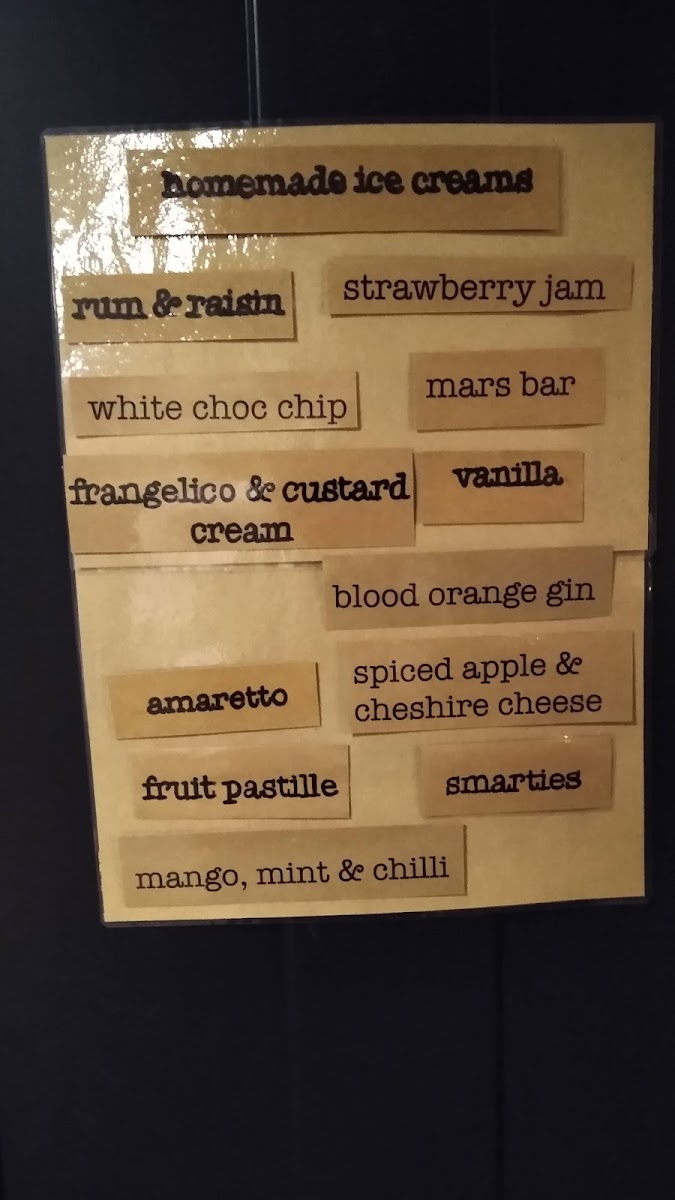 homemade ice creams
rum & raisin
strawberry jam
white choc chip
mars bar
frangelico & custard
cream
vanilla
blood orange gin
amaretto
spiced apple &
cheshire cheese
fruit pastille
smarties
mango, mint & chilli